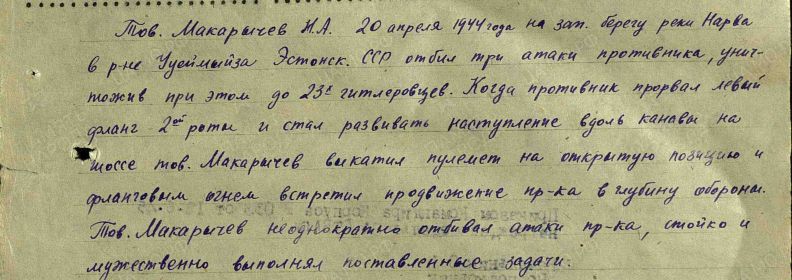 Тов. Макарычев И.А. 20 апреля 1944 года на зап. берегу реки Нарва
в р-не Уусмыйза Эстонск. ССР отбил три атаки противника, унич-
тожив при этом до 23х гитлеровцев. Когда противник прорвал левый
фланг 2ой роты и стал развивать наступление вдоль канавы на
шоссе тов. Макарычев выкатил пулемет на открытую позицию и
фланговым огнем встретил продвижение пр-ка в глубину обороны.
Тов. Макарычев неоднократно отбивал атаки пр-ка, стойко и
мужественно выполнял поставленные задачи.